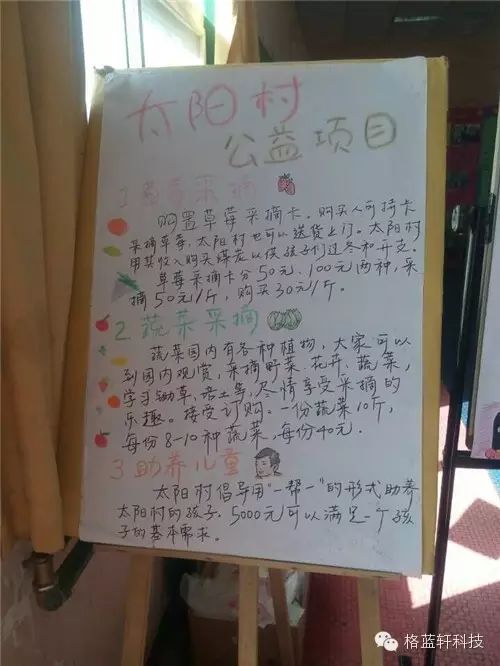 太阳村
公益项目
1.草莓采摘
购置草莓采摘卡。购买人可持卡
采摘草莓,太阳村也可以送货上门。太阳村
用其收入购买煤炭以供孩子们过冬和开支。
草莓采摘卡分50元、100元两种,采
摘50元/斤,购买30元/斤。
2.蔬菜采摘
蔬菜园内有各种植物,大家可以
到园内观赏,采摘野菜、花卉、蔬菜,
学习锄草、培土等,尽情享受采摘的
乐趣。接受订购。一份蔬菜10斤,
每份8-10种蔬菜,每份40元.
3.助养儿童
太阳村倡导用“一帮一”的形式助养
太阳村的孩子.5000元可以满足一个孩
子的基本需求。
格蓝轩科技